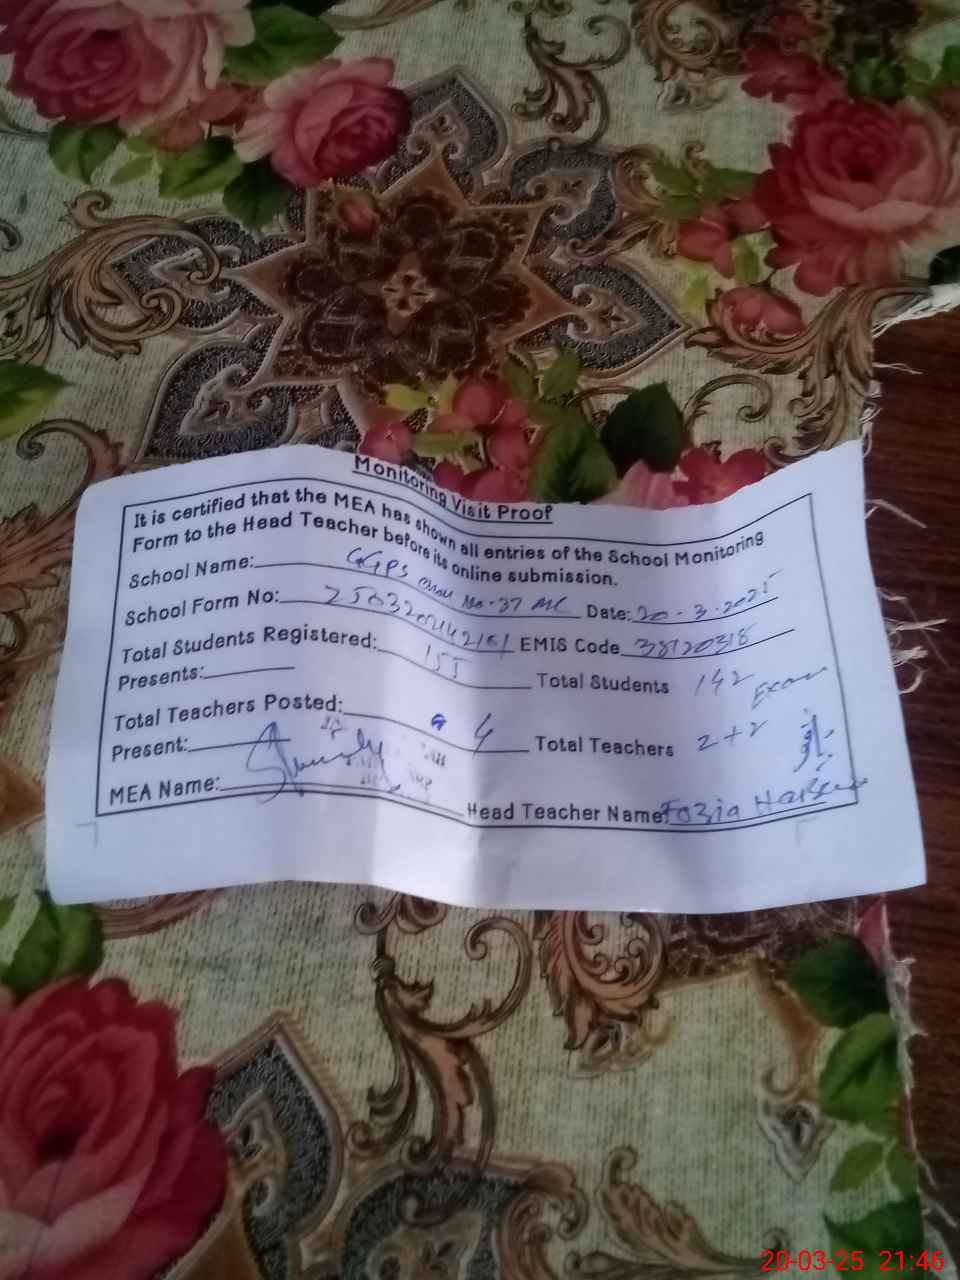 Monitoring Visit Proof
It is certified that the MEA has shown all entries of the School Monitoring
Form to the Head Teacher before its online submission.
School Name: GGPS Chak No. 37 MC Date: 20-3-2025
School Form No: EMIS Code
Total Students Registered: 155 Total Students 142
Presents: Exam
Total Teachers Posted: 4 Total Teachers 2+2
Present:
MEA Name: Head Teacher Name: Fozia
20-03-25 21:46